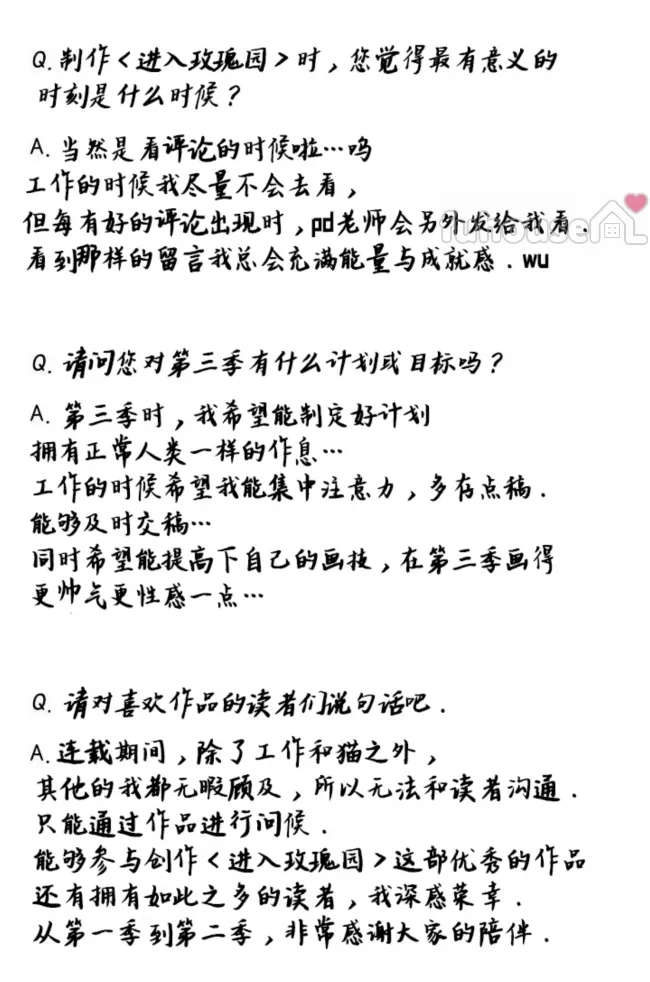 Q. 制作<进入玫瑰园>时，您觉得最有意义的
时刻是什么时候？
A. 当然是看评论的时候啦…呜
工作的时候我尽量不会去看，
但每有好的评论出现时，pd老师会另外发给我看.
funouse
看到那样的留言我总会充满能量与成就感. wu
Q. 请问您对第三季有什么计划或目标吗？
A. 第三季时，我希望能制定好计划
拥有正常人类一样的作息…
工作的时候希望我能集中注意力，多存点稿.
能够及时交稿…
同时希望能提高下自己的画技，在第三季画得
更帅气更性感一点…
Q. 请对喜欢作品的读者们说句话吧.
A. 连载期间，除了工作和猫之外，
其他的我都无暇顾及，所以无法和读者沟通.
只能通过作品进行问候.
能够参与创作<进入玫瑰园>这部优秀的作品
还有拥有如此之多的读者，我深感荣幸.
从第一季到第二季，非常感谢大家的陪伴.